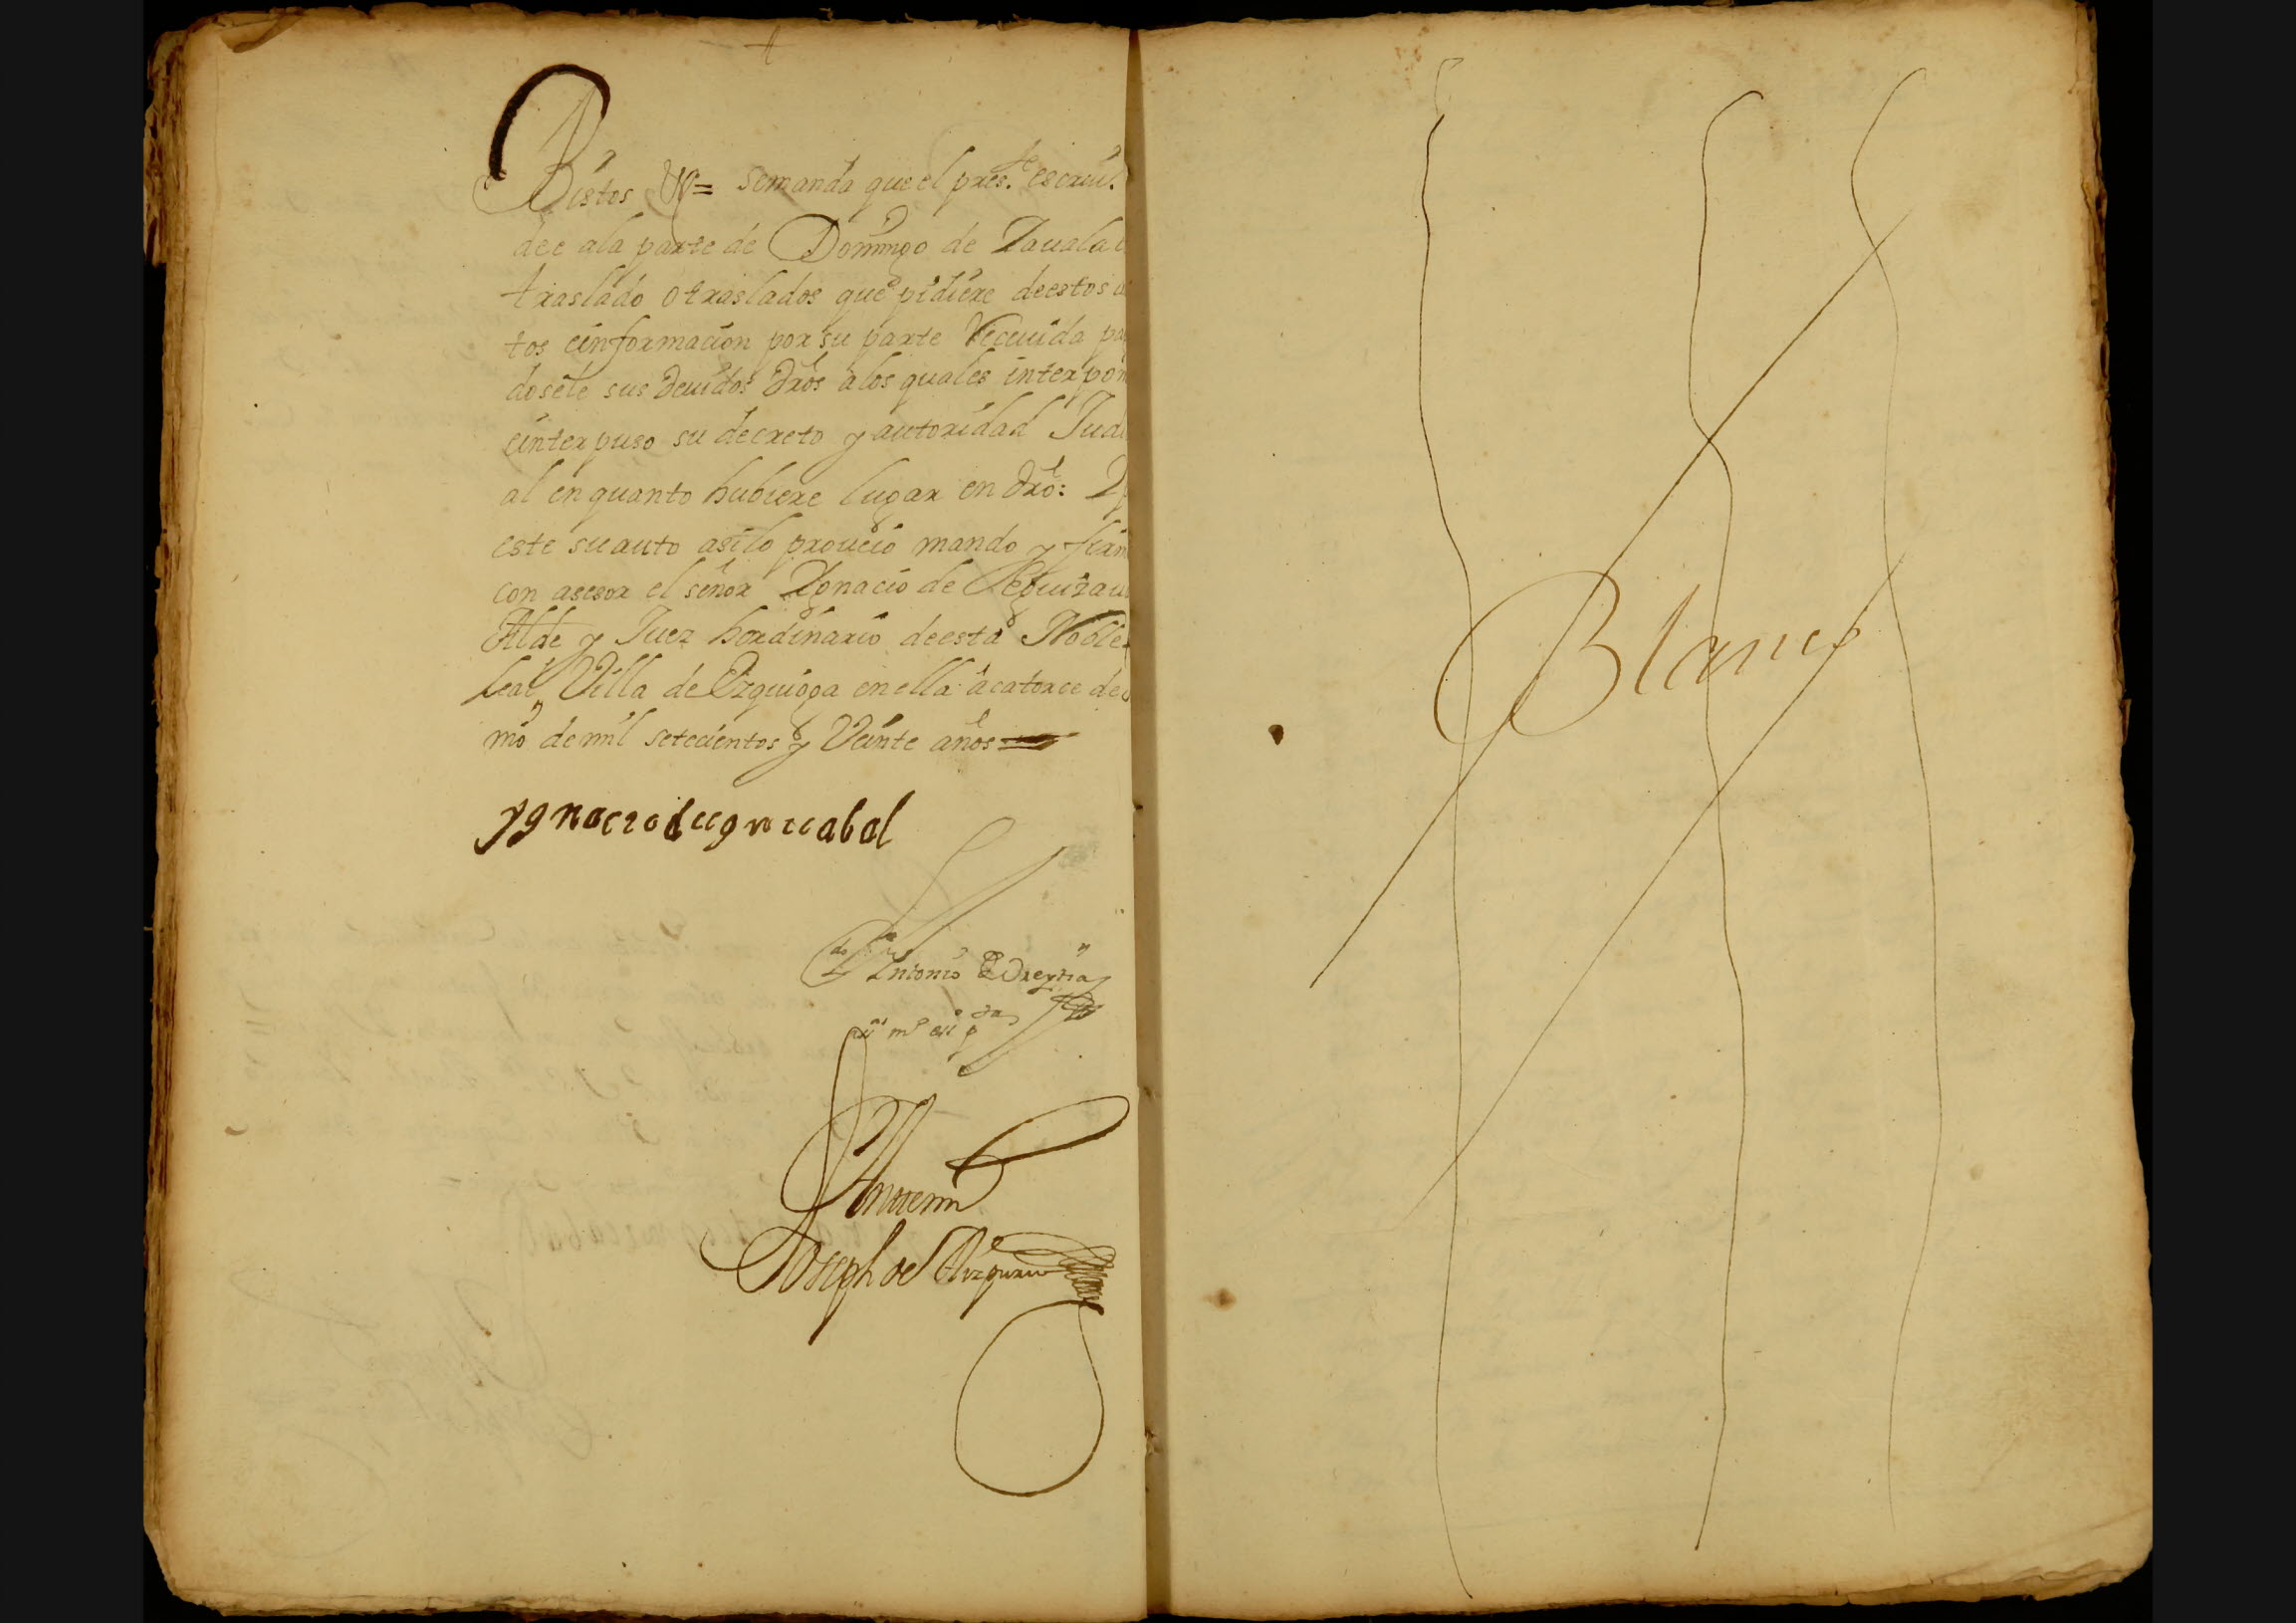 Bistos &ª = semanda que el pres.te escriu.
dee ala parte de Domingo de Zauala
traslado otraslados que pidiere deestos
tos einformacion por su parte Receuida
dosele sus deuidos dros alos quales interpon
einterpuso su decreto y autoridad Judi
al en quanto hubiere lugar en dro:
este su auto asilo proueio mando y firm
con asesor el señor Ygnacio de
Alde y Juez hordinario deesta Noble
Leal Villa de Ezquioga en ella acatorce de
mo demil setecientos y Veinte años
ygnacio de
Antonio
Antemi
Joseph de
Blanco